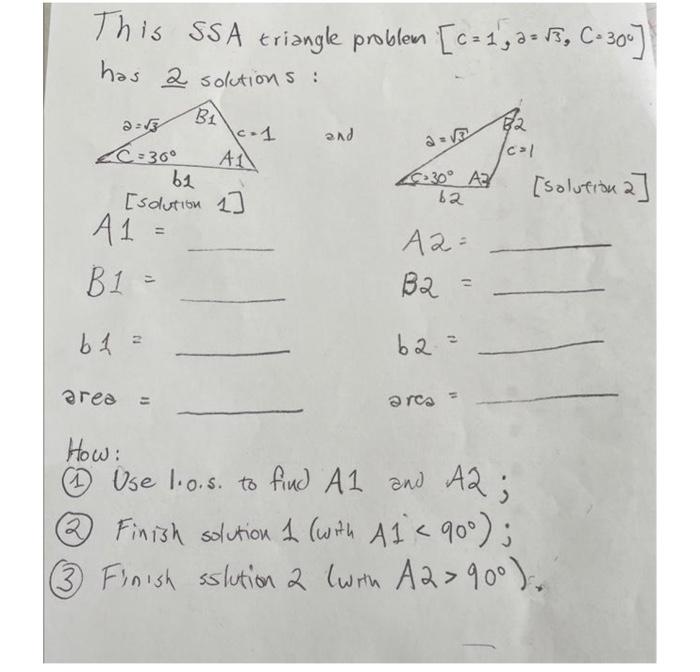 This SSA triangle problem [c = 1, a = √3, C = 30°]
has 2 solutions :
a = √3 B1 c = 1
C = 30° A1
b1
and
a = √3 B2
c = 1
C = 30° A2
b2
[solution 1] [solution 2]
A1 = ____ A2 = ____
B1 = ____ B2 = ____
b1 = ____ b2 = ____
area = ____ area = ____
How :
① Use l.o.s. to find A1 and A2 ;
② Finish solution 1 (with A1 < 90°) ;
③ Finish sslution 2 (with A2 > 90°).